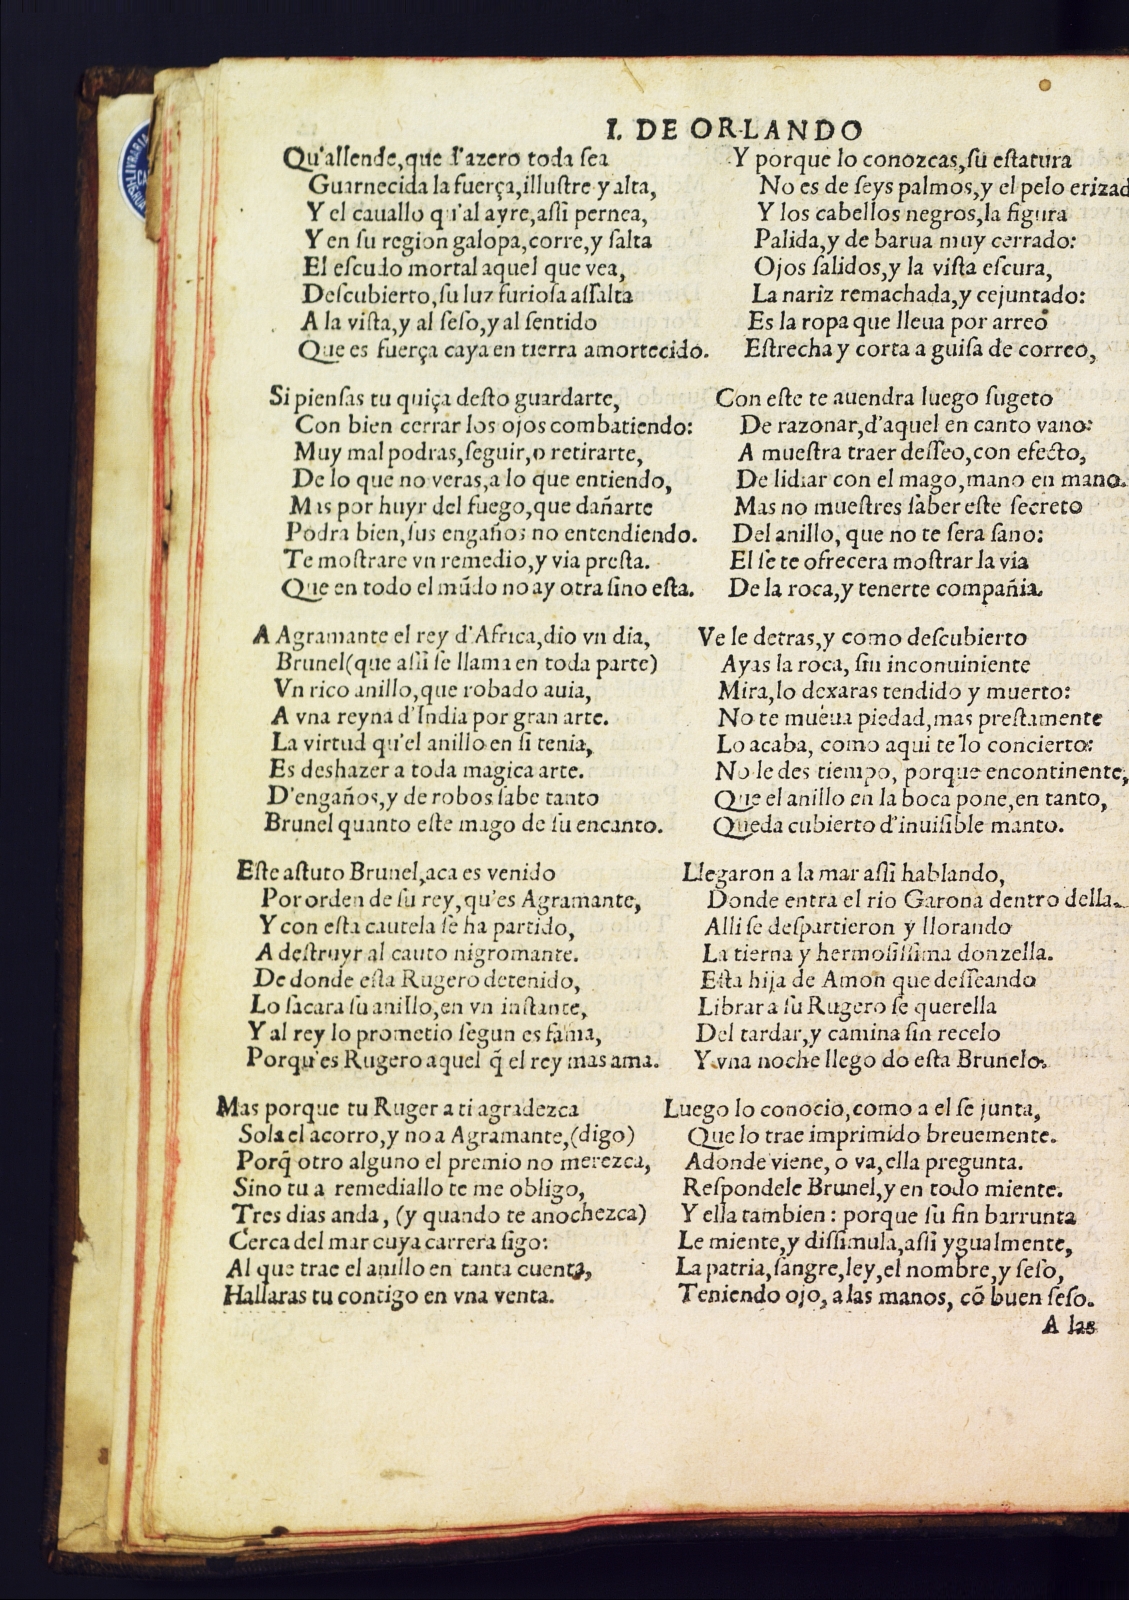 I. DE ORLANDO
Qu'allende,que d'azero toda sea
Guarnecida la fuerça,illustre y alta,
Y el cauallo q'al ayre,assi pernea,
Y en su region galopa,corre,y salta
El escudo mortal aquel que vea,
Descubierto,su luz furiosa assalta
A la vista,y al seso,y al sentido
Que es fuerça caya en tierra amortecido.
Si piensas tu quiça desto guardarte,
Con bien cerrar los ojos combatiendo:
Muy mal podras,seguir,o retirarte,
De lo que no veras,a lo que entiendo,
Mas por huyr del fuego,que dañarte
Podra bien,sus engaños no entendiendo.
Te mostrare vn remedio,y via presta.
Que en todo el mũdo no ay otra sino esta.
A Agramante el rey d'Africa,dio vn dia,
Brunel(que assi se llama en toda parte)
Vn rico anillo,que robado auia,
A vna reyna d'India por gran arte.
La virtud qu'el anillo en si tenia,
Es deshazer a toda magica arte.
D'engaños,y de robos sabe tanto
Brunel quanto este mago de su encanto.
Este astuto Brunel,aca es venido
Por orden de su rey,qu'es Agramante,
Y con esta cautela se ha partido,
A destruyr al cauto nigromante.
De donde esta Rugero detenido,
Lo sacara su anillo,en vn instante,
Y al rey lo prometio segun es fama,
Porqu'es Rugero aquel q̃ el rey mas ama.
Mas porque tu Ruger a ti agradezca
Sola el acorro,y no a Agramante,(digo)
Porq̃ otro alguno el premio no merezca,
Sino tu a remediallo te me obligo,
Tres dias anda, (y quando te anochezca)
Cerca del mar cuya carrera sigo:
Al que trae el anillo en tanta cuenta,
Hallaras tu contigo en vna venta.
Y porque lo conozcas,su estatura
No es de seys palmos,y el pelo erizad
Y los cabellos negros,la figura
Palida,y de barua muy cerrado:
Ojos salidos,y la vista escura,
La nariz remachada,y cejuntado:
Es la ropa que lleua por arreo
Estrecha y corta a guisa de correo,
Con este te auendra luego sugeto
De razonar,d'aquel en canto vano:
A muestra traer desseo,con efecto,
De lidiar con el mago,mano en mano.
Mas no muestres saber este secreto
Del anillo, que no te sera sano:
El se te ofrecera mostrar la via
De la roca,y tenerte compañia.
Ve le detras,y como descubierto
Ayas la roca, sin inconuiniente
Mira,lo dexaras tendido y muerto:
No te mueua piedad,mas prestamente
Lo acaba, como aqui te lo concierto:
No le des tiempo, porque encontinente,
Que el anillo en la boca pone,en tanto,
Queda cubierto d'inuisible manto.
Llegaron a la mar assi hablando,
Donde entra el rio Garona dentro della.
Alli se despartieron y llorando
La tierna y hermosissima donzella.
Esta hija de Amon que desseando
Librar a su Rugero se querella
Del tardar,y camina sin recelo
Y vna noche llego do esta Brunelo.
Luego lo conocio,como a el se junta,
Que lo trae imprimido breuemente.
Adonde viene, o va,ella pregunta.
Respondele Brunel,y en todo miente.
Y ella tambien: porque su fin barrunta
Le miente,y dissimula,assi ygualmente,
La patria,sangre,ley,el nombre,y seso,
Teniendo ojo,a las manos, cõ buen seso.
A las